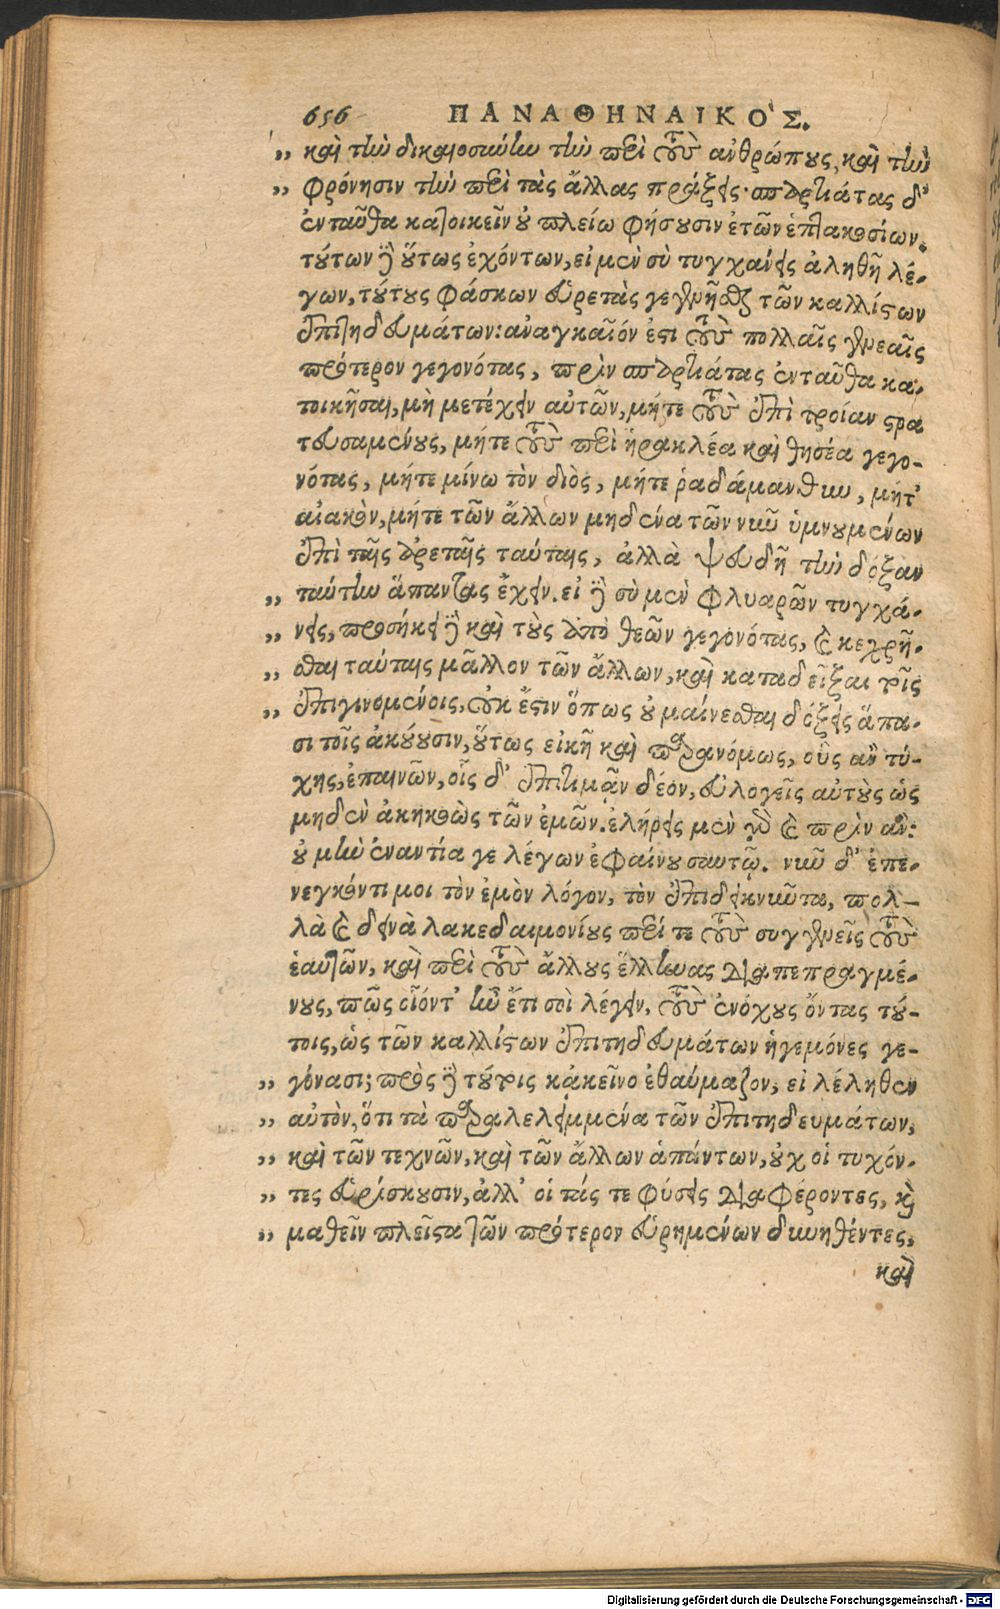 656 ΠΑΝΑΘΗΝΑΙΚΟ'Σ.
„ καὶ τὴν δικαιοσύνην τὴν περὶ τοὺς ἀνθρώπους, καὶ τὴν
„ φρόνησιν τὴν περὶ τὰς ἄλλας πράξεις· σπαρτιάτας δ'
ἐνταῦθα κατοικεῖν οὐ πλείω φήσουσιν ἐτῶν ἑπτακοσίων.
τούτων δὲ οὕτως ἐχόντων, εἰ μὲν σὺ τυγχάνεις ἀληθῆ λέ-
γων, τούτους φάσκων εὑρετὰς γεγενῆσθαι τῶν καλλίστων
ἐπιτηδευμάτων: ἀναγκαῖόν ἐστι τοὺς πολλαῖς γενεαῖς
πρότερον γεγονότας, πρὶν σπαρτιάτας ἐνταῦθα κα-
τοικῆσαι, μὴ μετέχειν αὐτῶν, μήτε τοὺς ἐπὶ τροίαν στρα
τευσαμένους, μήτε τοὺς περὶ ἡρακλέα καὶ θησέα γεγο-
νότας, μήτε μίνω τὸν διὸς, μήτε ῥαδάμανθυν, μήτ'
αἰακὸν, μήτε τῶν ἄλλων μηδένα τῶν νῦν ὑμνουμένων
ἐπὶ ταῖς ἀρεταῖς ταύταις, ἀλλὰ ψευδῆ τὴν δόξαν
„ ταύτην ἅπαντας ἔχειν. εἰ δὲ σὺ μὲν φλυαρῶν τυγχά-
„ νεις, προσήκει δὲ καὶ τοὺς ἀπὸ θεῶν γεγονότας, καὶ κεχρῆ-
„ σθαι ταύταις μᾶλλον τῶν ἄλλων, καὶ καταδεῖξαι τοῖς
„ ἐπιγινομένοις, οὐκ ἔστιν ὅπως οὐ μαίνεσθαι δόξεις ἅπα-
σι τοῖς ἀκούουσιν, οὕτως εἰκῆ καὶ παρανόμως, οὓς ἂν τύ-
χῃς, ἐπαινῶν, οἷς δ' ἐπιτιμᾷν δέον, εὐλογεῖς αὐτοὺς ὡς
μηδὲν ἀκηκοὼς τῶν ἐμῶν. ἐλήρεις μὲν γὰρ καὶ πρὶν ἂν:
οὐ μὴν ἐναντία γε λέγων ἐφαίνου σαυτῷ. νῦν δ' ἐπε-
νεγκόντι μοι τὸν ἐμὸν λόγον, τὸν ἐπιδεικνῦντα, πολ-
λὰ καὶ δεινὰ λακεδαιμονίους περί τε τοὺς συγγενεῖς τοὺς
ἑαυτῶν, καὶ περὶ τοὺς ἄλλους ἕλληνας διαπεπραγμέ-
νους, πῶς οἷόντ' ἦν ἔτι σοὶ λέγειν, τοὺς ἐνόχους ὄντας τού-
τοις, ὡς τῶν καλλίστων ἐπιτηδευμάτων ἡγεμόνες γε-
„ γόνασι; πρὸς δὲ τούτοις κἀκεῖνο ἐθαύμαζον, εἰ λέληθεν
„ αὐτὸν, ὅτι τὰ παραλελειμμένα τῶν ἐπιτηδευμάτων,
„ καὶ τῶν τεχνῶν, καὶ τῶν ἄλλων ἁπάντων, οὐχ οἱ τυχόν-
„ τες εὑρίσκουσιν, ἀλλ' οἱ τάς τε φύσεις διαφέροντες, καὶ
„ μαθεῖν πλεῖστα τῶν πρότερον εὑρημένων δυνηθέντες,
καὶ
Digitalisierung gefördert durch die Deutsche Forschungsgemeinschaft - DFG